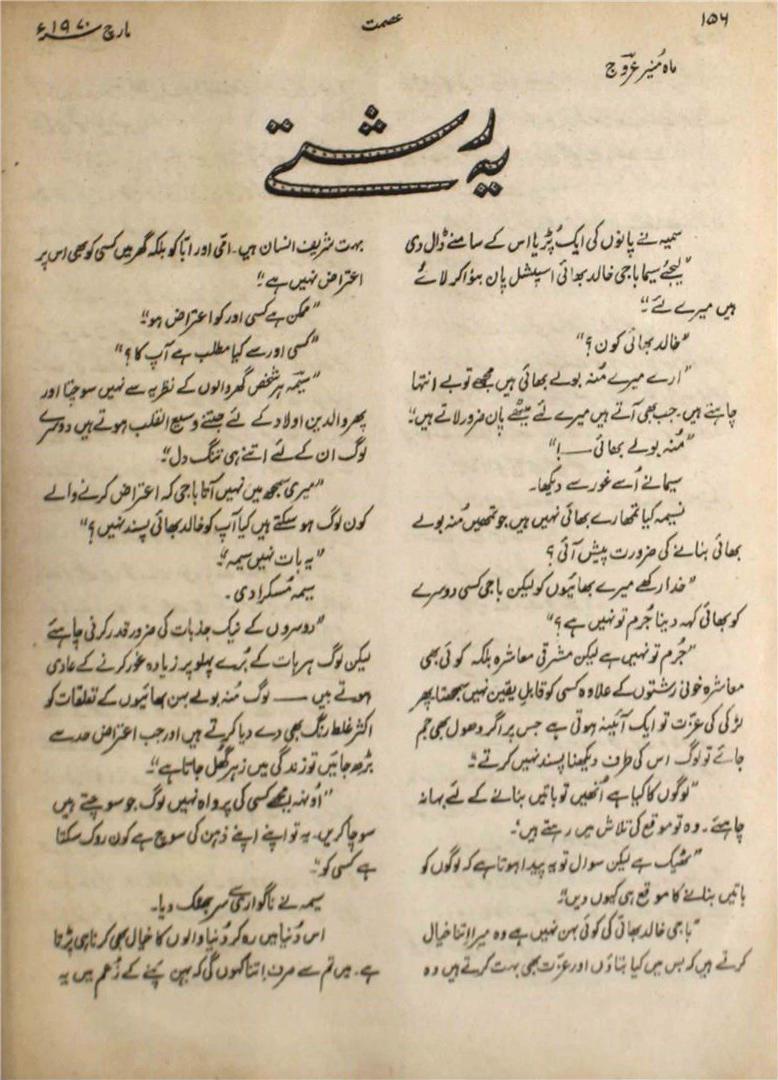 ۱۵۶
عصمت
مارچ ۱۹۷۰ء
ماہ منیر عروج
یہ رشتے
سمیہ نے پانوں کی ایک پڑیا اس کے سامنے ڈال دی
"لیجئے سیما باجی خالد بھائی اسپیشل پان بنوا کر لائے
ہیں میرے لئے"
"خالد بھائی کون؟"
"ارے میرے منہ بولے بھائی ہیں مجھے تو بے انتہا
چاہتے ہیں۔ جب بھی آتے ہیں میرے لئے میٹھے پان ضرور لاتے ہیں"
"منہ بولے بھائی ——!"
سیما نے اُسے غور سے دیکھا۔
نسیمہ کیا تمھارے بھائی نہیں ہیں جو تمھیں منہ بولے
بھائی بنانے کی ضرورت پیش آئی؟
"خدا رکھے میرے بھائیوں کو لیکن باجی کسی دوسرے
کو بھائی کہہ دینا جُرم تو نہیں ہے؟"
"جُرم تو نہیں ہے لیکن مشرقی معاشرہ بلکہ کوئی بھی
معاشرہ خونی رشتوں کے علاوہ کسی کو قابلِ یقین نہیں سمجھتا پھر
لڑکی کی عزّت تو ایک آئینہ ہوتی ہے جس پر اگر دھول بھی جم
جائے تو لوگ اس کی طرف دیکھنا پسند نہیں کرتے"
"لوگوں کا کیا ہے اُنھیں تو باتیں بنانے کے لئے بہانہ
چاہیئے۔ وہ تو موقع کی تلاش میں رہتے ہیں"
"ٹھیک ہے لیکن سوال تو یہ پیدا ہوتا ہے کہ لوگوں کو
باتیں بنانے کا موقع ہی کیوں دیں"
"باجی خالد بھائی کی کوئی بہن نہیں ہے وہ میرا اتنا خیال
کرتے ہیں کہ بس میں کیا بتاؤں اور عزّت بھی بہت کرتے ہیں وہ
بہت شریف انسان ہیں۔ امّی اور ابّا کو بلکہ گھر میں کسی کو بھی اس پر
اعتراض نہیں ہے"
"ممکن ہے کسی اور کو اعتراض ہو"
"کسی اور سے کیا مطلب ہے آپ کا؟"
"سیمہ ہر شخص گھر والوں کے نظریہ سے نہیں سوچتا اور
پھر والدین اولاد کے لئے جتنے وسیع القلب ہوتے ہیں دوسرے
لوگ ان کے لئے اتنے ہی تنگ دل"
"میری سمجھ میں نہیں آتا باجی کہ اعتراض کرنے والے
کون لوگ ہو سکتے ہیں کیا آپ کو خالد بھائی پسند نہیں؟"
"یہ بات نہیں سیمہ"
سیمہ مُسکرا دی۔
"دوسروں کے نیک جذبات کی ضرور قدر کرنی چاہئے
لیکن لوگ ہر بات کے بُرے پہلو پر زیادہ غور کرنے کے عادی
ہوتے ہیں —— لوگ منہ بولے بہن بھائیوں کے تعلقات کو
اکثر غلط رنگ بھی دے دیا کرتے ہیں اور جب اعتراض حد سے
بڑھ جائیں تو زندگی میں زہر گھُل جاتا ہے"
"اونہہ مجھے کسی کی پرواہ نہیں لوگ جو سوچتے ہیں
سوچا کریں۔ یہ تو اپنے اپنے ذہن کی سوچ ہے کون روک سکتا
ہے کسی کو"
سیمہ نے ناگواری سے سر جھٹک دیا۔
اس دُنیا میں رہ کر دُنیا والوں کا خیال بھی کرنا ہی پڑتا
ہے۔ میں تم سے صرف اتنا کہوں گی کہ بہن بننے کے زُعم میں یہ